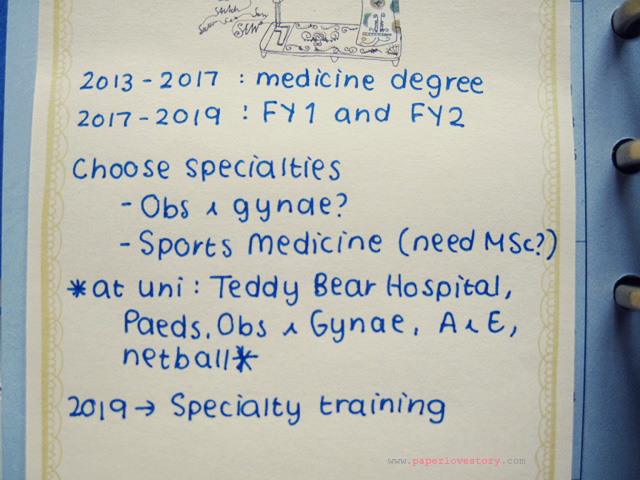 Stitch
Sew
2013 - 2017 : medicine degree
2017 - 2019 : FY1 and FY2
Choose specialties
- Obs & gynae?
- Sports medicine (need MSc?)
*at uni : Teddy Bear Hospital,
Paeds, Obs & Gynae, A & E,
netball*
2019 → Specialty training
www.paperlovestory.com